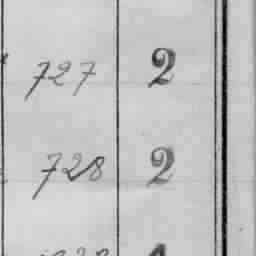 727 2
728 2